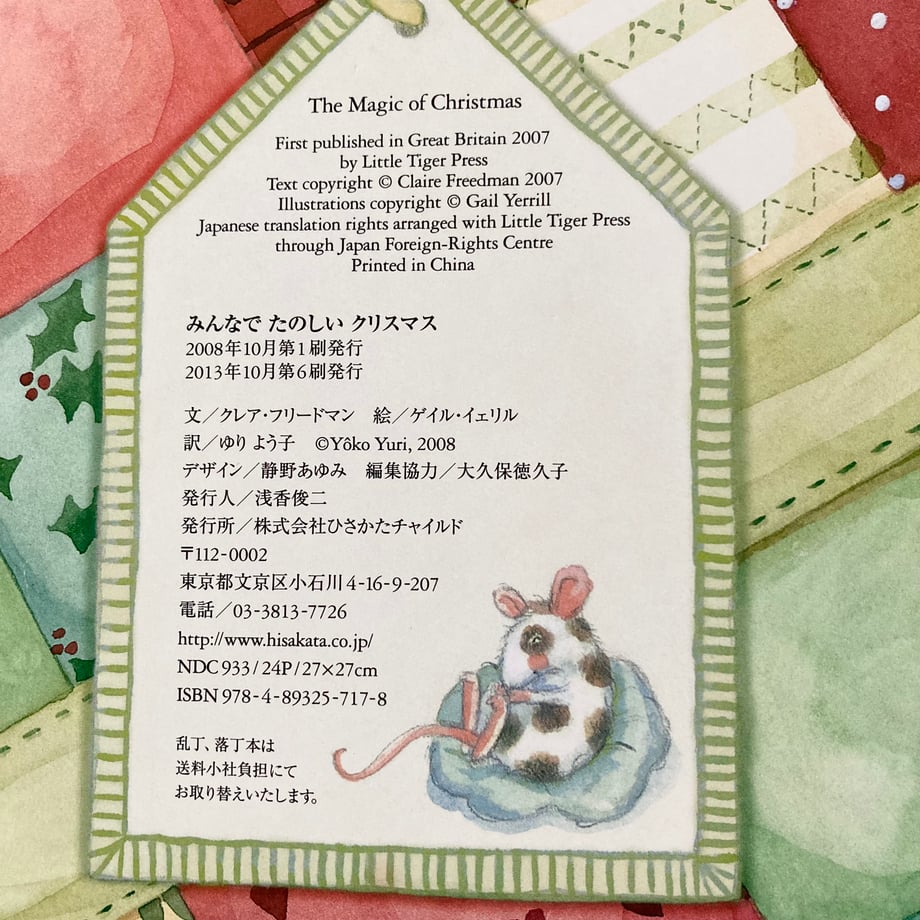 The Magic of Christmas
First published in Great Britain 2007
by Little Tiger Press
Text copyright © Claire Freedman 2007
Illustrations copyright © Gail Yerrill
Japanese translation rights arranged with Little Tiger Press
through Japan Foreign-Rights Centre
Printed in China
みんなで たのしい クリスマス
2008年10月第1刷発行
2013年10月第6刷発行
文／クレア・フリードマン　絵／ゲイル・イェリル
訳／ゆり よう子　©Yôko Yuri, 2008
デザイン／静野あゆみ　編集協力／大久保徳久子
発行人／浅香俊二
発行所／株式会社ひさかたチャイルド
〒112-0002
東京都文京区小石川4-16-9-207
電話／03-3813-7726
http://www.hisakata.co.jp/
NDC933/24P/27×27cm
ISBN978-4-89325-717-8
乱丁、落丁本は
送料小社負担にて
お取り替えいたします。